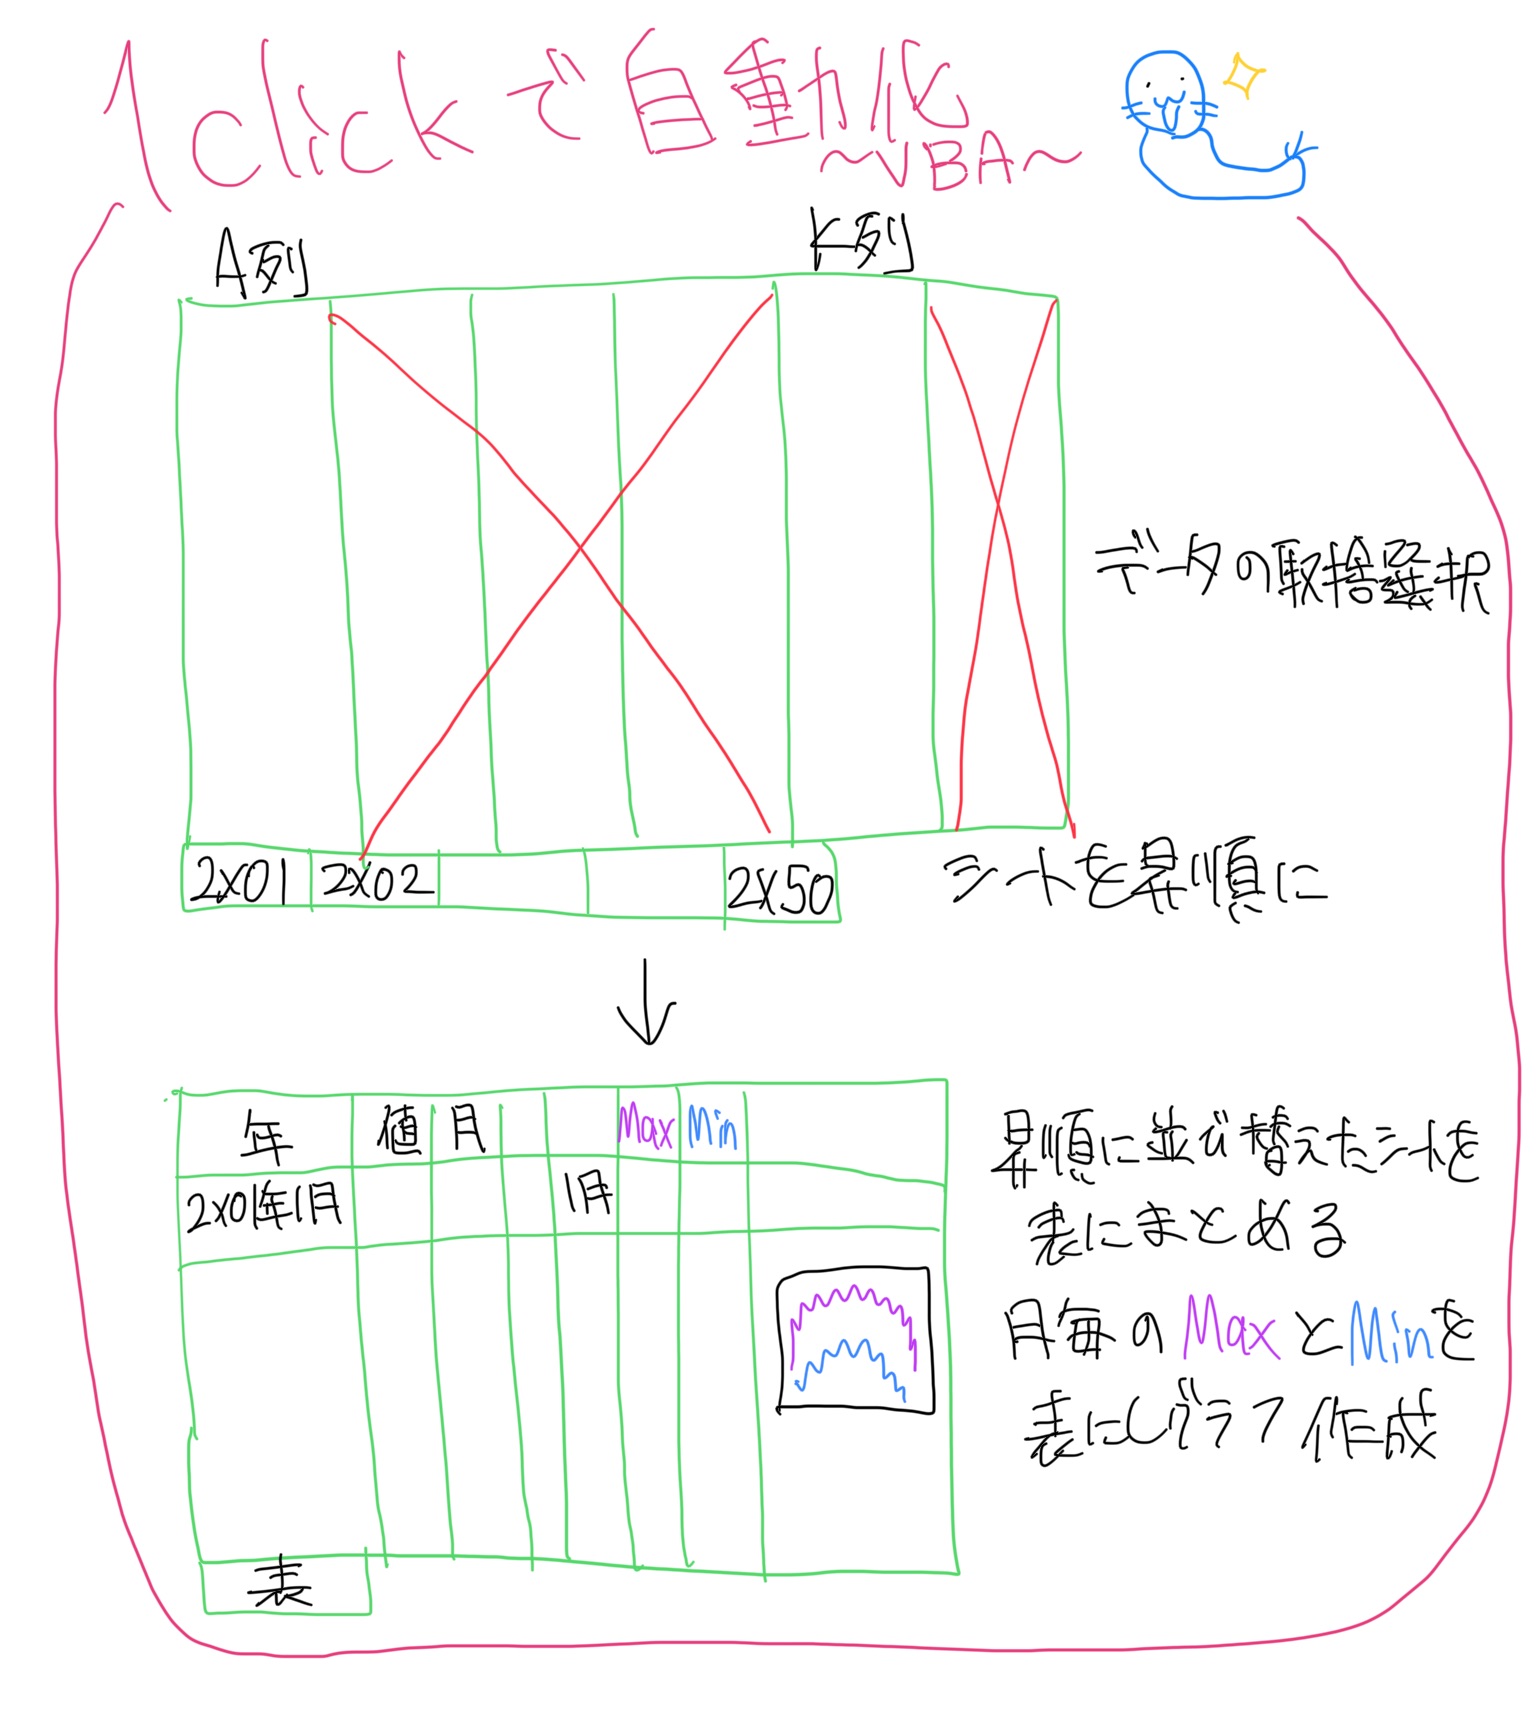 1clickで自動化
～VBA～
A列
K列
データの取捨選択
2x01 2x02 2x50
シートを昇順に
↓
年 値 月 Max Min
2x01年1月 1月
昇順に並び替えたシートを
表にまとめる
月毎のMaxとMinを
表にしグラフ作成
表